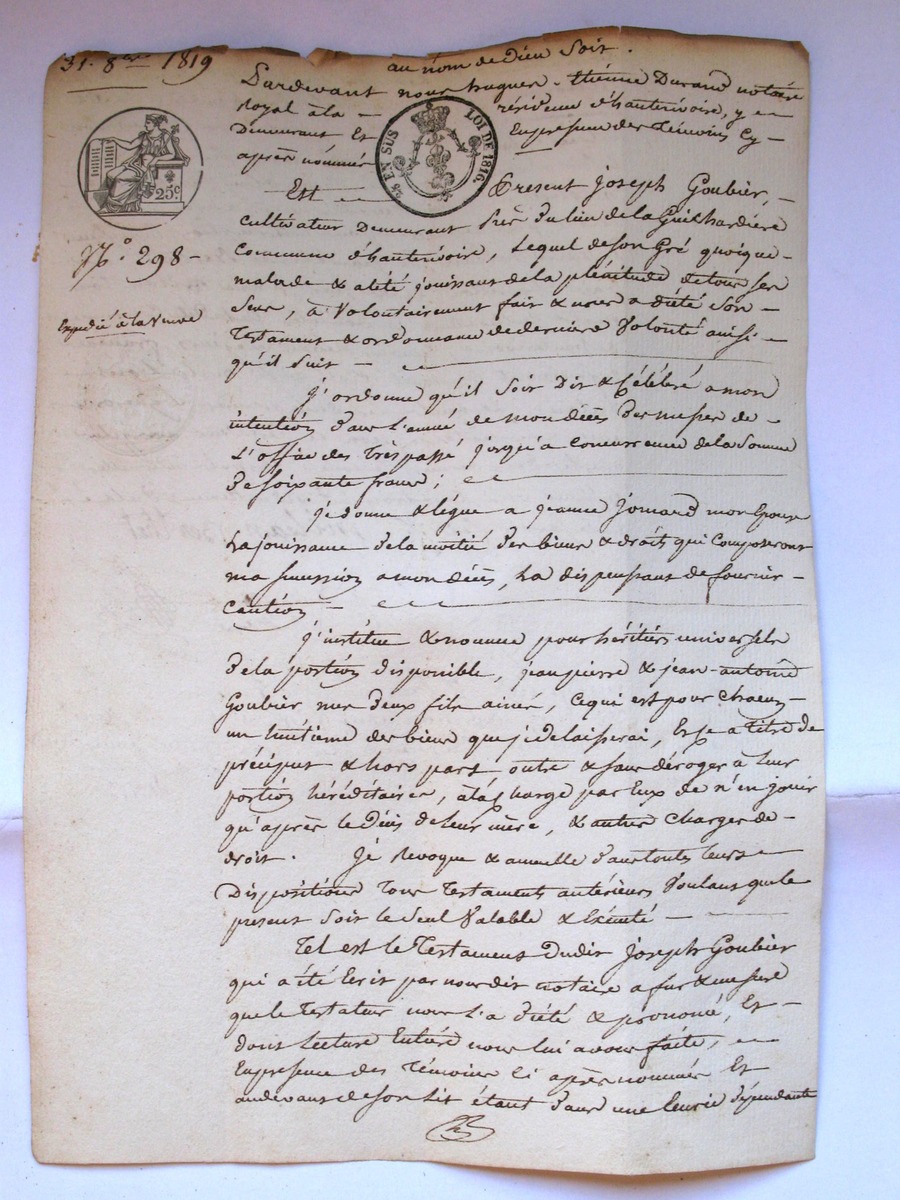 31. 8bre 1819
au nom de Dieu Soit.
Pardevant nous hugues-thiénne Durand notaire
royal à la — résidence d'hauterivoire, y
Demeurant Et En presence des Témoins Cy-
après nommés
2/s EN SUS LOI DE 1816.
25c
N.o 298 —
Expedié à la Veuve
Est — Present Joseph Goubier,
cultivateur Demeurant Au lieu de la Guilhardiere
Commune d'hauterivoire, Lequel de son Gré quoique-
malade & alité jouissant de la plénitude de tous ses
Sens, à Volontairement fait & nous a dicté Son-
Testament & ordonnance de derniere Volonté ainsi
qu'il suit —
j'ordonne qu'il Soit Dit & Célébré a mon
intention Dans l'année de mon décès Des messes de
L'office des Trèspassé jusqu'a concurrence de la Somme
de soixante francs;
je donne & lègue a jeanne jomard mon Epouse
La jouissance de la moitié Des biens & droits qui Composeront
ma succession a mon décès, La dispensant de fournir-
caution —
j'institue & nomme pour héritiers universels
De la portion disponible, jean pierre & jean-antoine
Goubier mes deux fils ainés, Ce qui est pour chacun
un huitieme des biens que je delaisserai, Et ce a Titre de
préciput & hors part outre & sans déroger à leur
portion héréditaires, à la Charge par Eux de n'en jouir
qu'après le Décès de leur mère, & autres Charges de-
droit. Je revoque & annulle dans toutes leurs
Dispositions Tous Testaments antérieurs Voulant que le
present Soit le Seul Valable & Exécuté —
Tel est le Testament Dudit Joseph Goubier
qui a été Ecrit par nous dit notaire a fur & mesure
que le Testateur nous l'a dicté & prononcé, Et
dont lecture Entière nous lui avons faite,
En presence des Témoins Ci après nommés Et
au devant de son Lit étant Dans une Ecurie dépendante